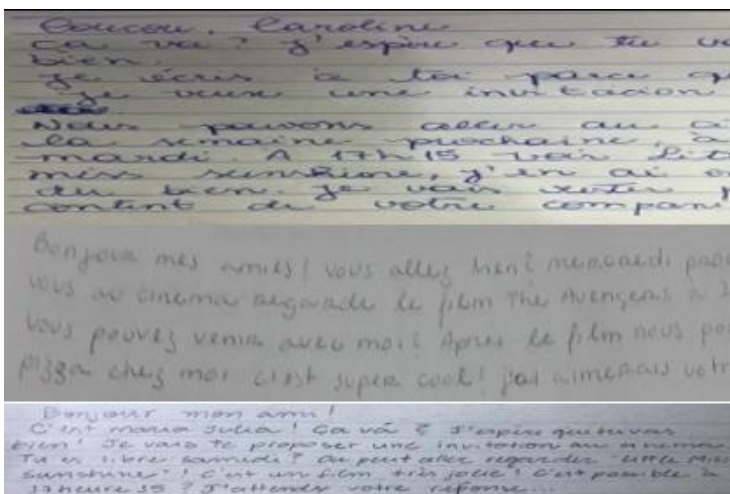 Coucou, Caroline
ça va? J'espère que tu va
bien.
Je écris à toi parce qu
je veux une invitacion
Nous pouvons aller au
la semaine prochaine, à
mardi. A 17h15 voir Lit
miss sunshine, j'en ai
du bien. Je vais
content de votre compan
Bonjour mes amies! vous allez bien? mercredi proc
vous au cinema regarde le film The Avengers à
vous pouvez venir avec moi? Apres le film nous po
pizza chez moi c'est super cool! j'ai aimerais votr
Bonjour mon ami!
C'est maria Julia! Ca vá? J'espère que tu vas
bien! Je vais te proposer une invitation au cinema.
Tu es libre samedi? On peut alle regarder little Miss
Sunshine! C'est un film très jolie! C'est possible à
17heure 35? J'attends votre réponse...